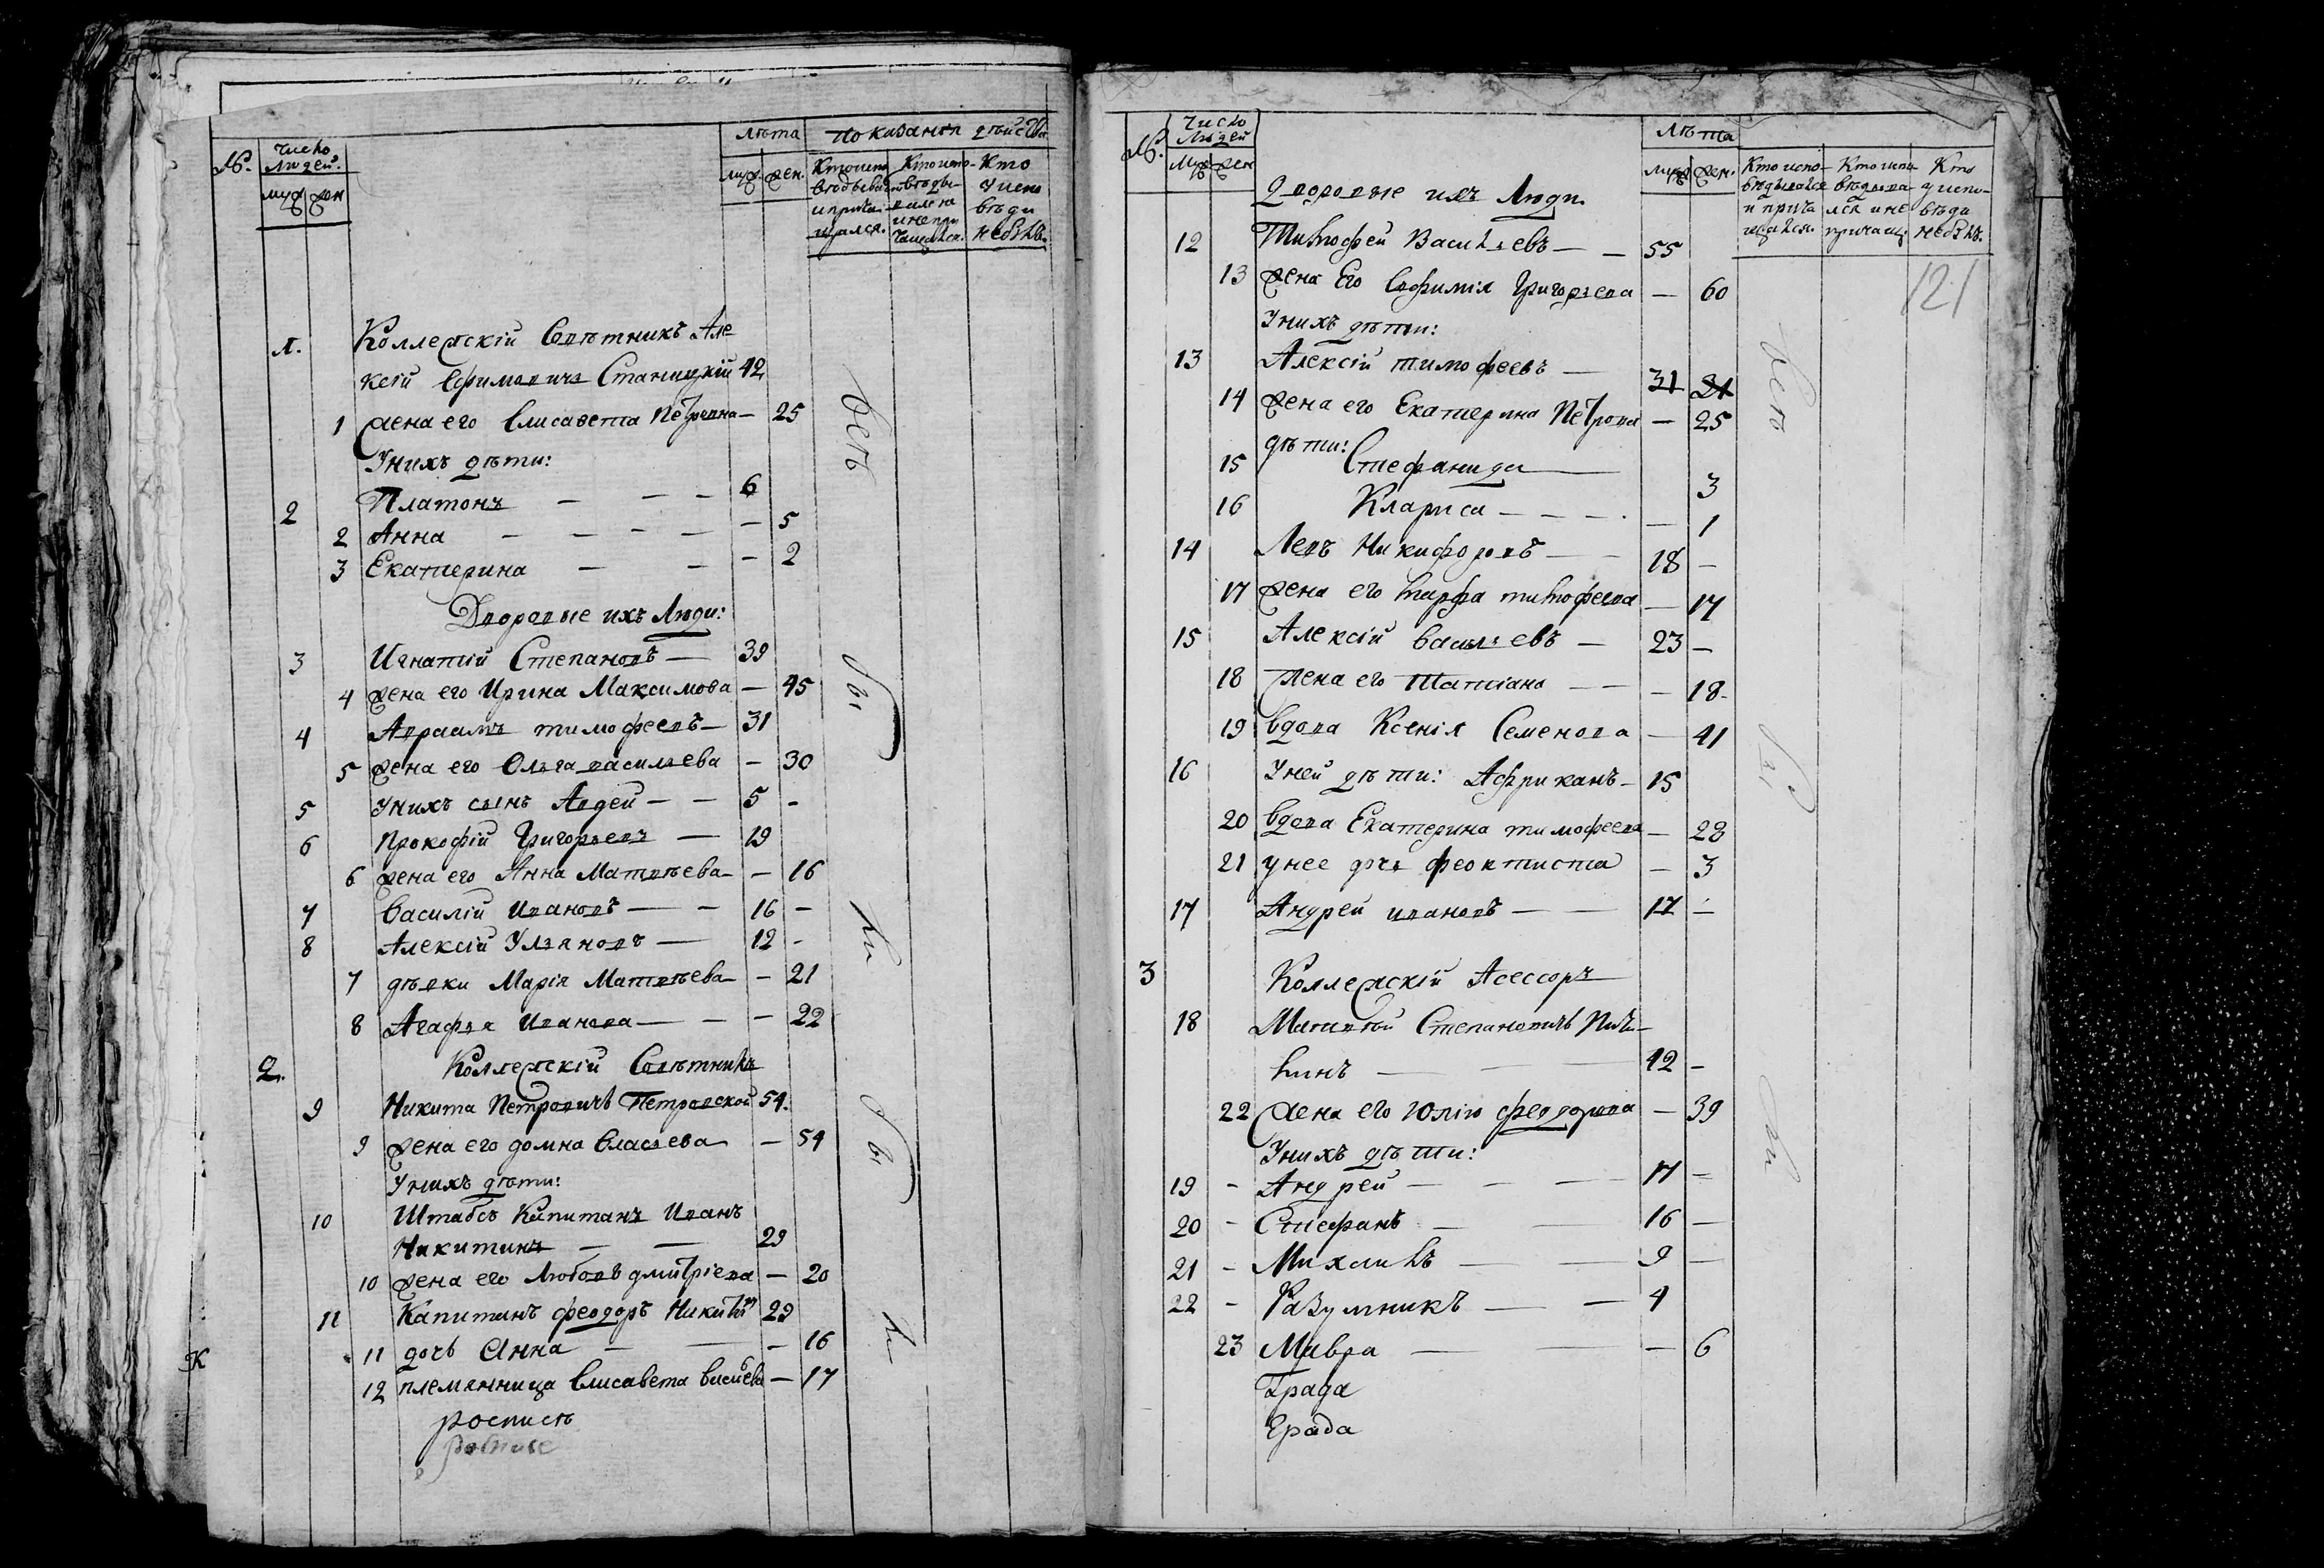 №. Число Людей. Лѣта Показанiя дѣйства
муж жен муж. жен. Кто испо- Кто испо- Кто
вѣдывался вѣды- у испо
иприча- вался вѣди
щался. и не при- небылъ.
чащался.
1. Коллежскiй Совѣтникъ Але
ксiй Ефимовичъ Станицкiй 42
1 жена его Елисавета Петровна — 25
У нихъ дѣти:
2 Платонъ — — — 6
2 Анна — — — — 5
3 Екатерина — — — 2
Дворовые ихъ Люди:
3 Игнатiй Степановъ — 39
4 жена его Ирина Максимова — 45
4 Авраамъ тимофеевъ — 31
5 жена его Ольга васильева — 30
5 У нихъ сынъ Авдей — — 5 -
6 Прокофiй Григорьевъ — 19
6 жена его Анна Матвѣева — — 16
7 Василiй Ивановъ — — 16 -
8 Алексiй Ульяновъ — 12 -
7 дѣвки Марiя Матвѣева — 21
8 Агафья Иванова — — — 22
2. Коллежскiй Совѣтникъ
9 Никита Петровичъ Петровской 54.
9 жена его домна Власьева — 54
У нихъ дѣти:
10 Штабсъ Капитанъ Иванъ
Никитинъ — — 29
10 жена его Любовь дмитрiева — 20
11 Капитанъ феодоръ Никитин 29
11 дочь Анна — — — 16
12 племянница Елисавета васильева — 17
роспись
весь
бы
ли
бы
ли
№. Число Людей Лѣта
Муж жен муж жен. Кто испо- Кто испо- Кто
вѣдывался вѣдыва- у испо-
и прича лся и не вѣди
щался. причащ. небылъ.
121
Дворовые ихъ Люди.
12 Тимофей Васильевъ — — 55
13 жена Его Евфимiя Григорьева — 60
У нихъ дѣти:
13 Алексiй тимофеевъ — 31 31
14 жена его Екатерина Петрова — 25
дѣти:
15 Стефанида — 3
16 Клариса — — — — 1
14 Левъ Никифоровъ — — 18 —
17 жена его марфа тимофеева — 17
15 Алексiй васильевъ — 23 —
18 жена его Татiана — — — 18
19 вдова Ксенiя Семенова — 41
16 У ней дѣти: Африканъ — 15
20 вдова Екатерина тимофеева — 28
21 у нее дочь феоктиста — 3
17 Андрей ивановъ — — 17 —
3 Коллежскiй Асессоръ
18 Матвѣй Степановичъ Пич-
кинъ — — 42 —
22 жена его Юлiю феодорова — 39
У нихъ дѣти:
19 - Андрей — — — 17 —
20 - Стефанъ — — 16 —
21 - Михаилъ — — 9 —
22 - Разумникъ — — 4
23 Мавра — — — 6
Града
Града
весь
бы
ли